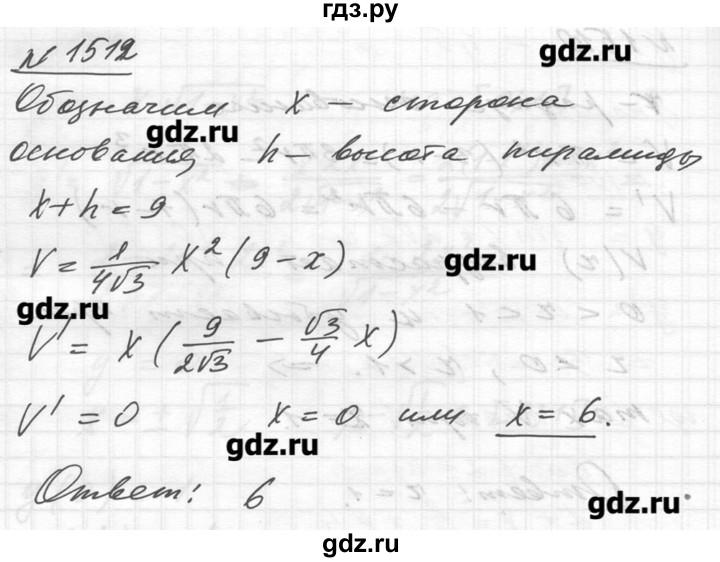 гдз.ру
№ 1512
gdz.ru
Обозначим x – сторона
gdz.ru
основания h – высота пирамиды
x + h = 9
V = 1/(4√3) x² (9 - x)
gdz.ru
gdz.ru
V' = x (9/(2√3) - √3/4 x)
V' = 0 x = 0 или x = 6.
gdz.ru
Ответ: 6
gdz.ru
gdz.ru